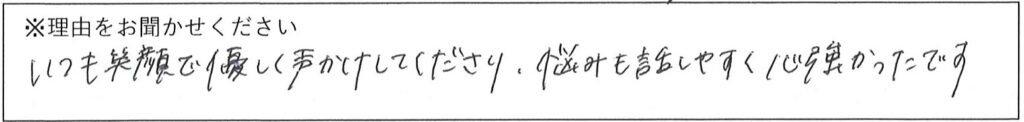 ※理由をお聞かせください
いつも笑顔で優しく声かけしてくださり、悩みも話しやすく心強かったです